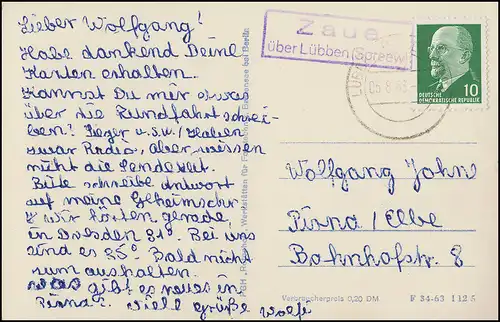 Lieber Wolfgang!
Habe dankend Deine
Karten erhalten.
Kannst Du mir etwas
über die Rundfahrt schrei-
ben? Sieger u.s.w. Haben
zwar Radio, aber wissen
nicht die Sendezeit.
Bitte schreibe Antwort
auf meine
Wir hörten gerade,
in Dresden 31°. Bei uns
sind es 35°. Bald nicht
zum aushalten.
Was gibt es neues in
Pirna? Viele grüße Wolfi
Zaue
über Lübben (Spreew
DEUTSCHE
DEMOKRATISCHE REPUBLIK
10
Wolfgang John
Pirna/Elbe
Bahnhofstr. 8
Verbraucherpreis 0,20 DM
F 34-63 112 5